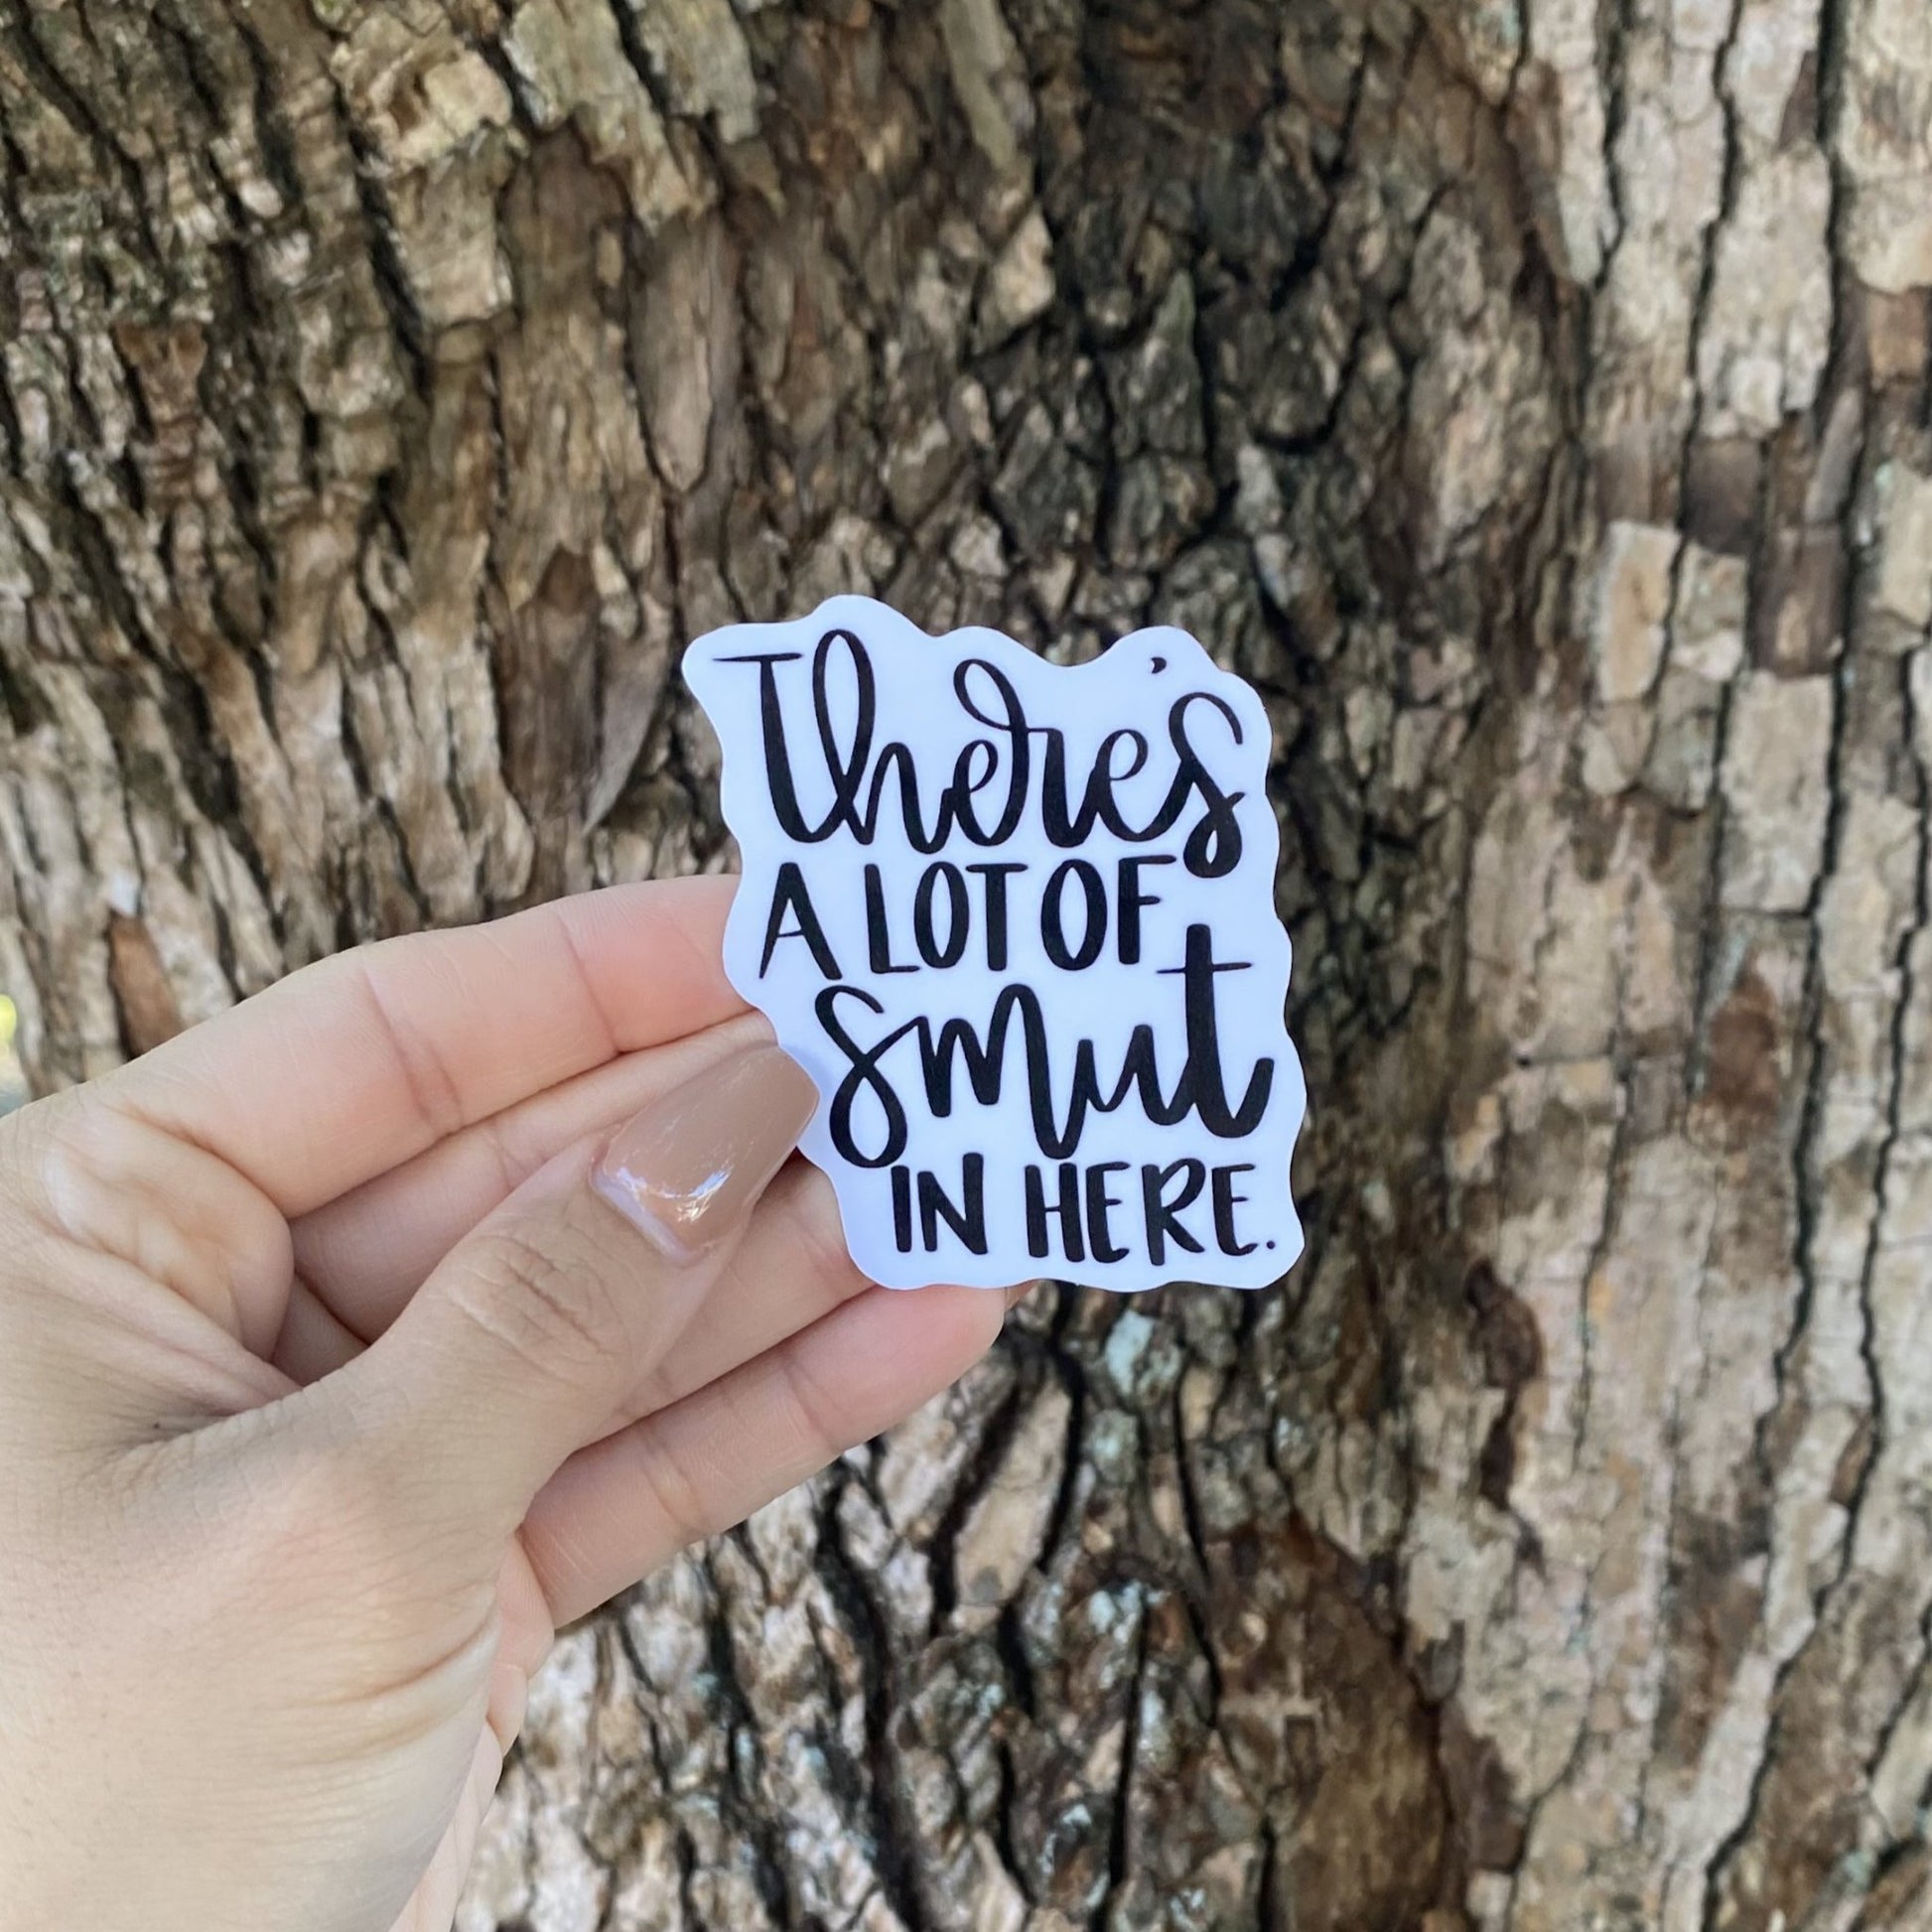 There's
A LOT OF
smut
IN HERE.